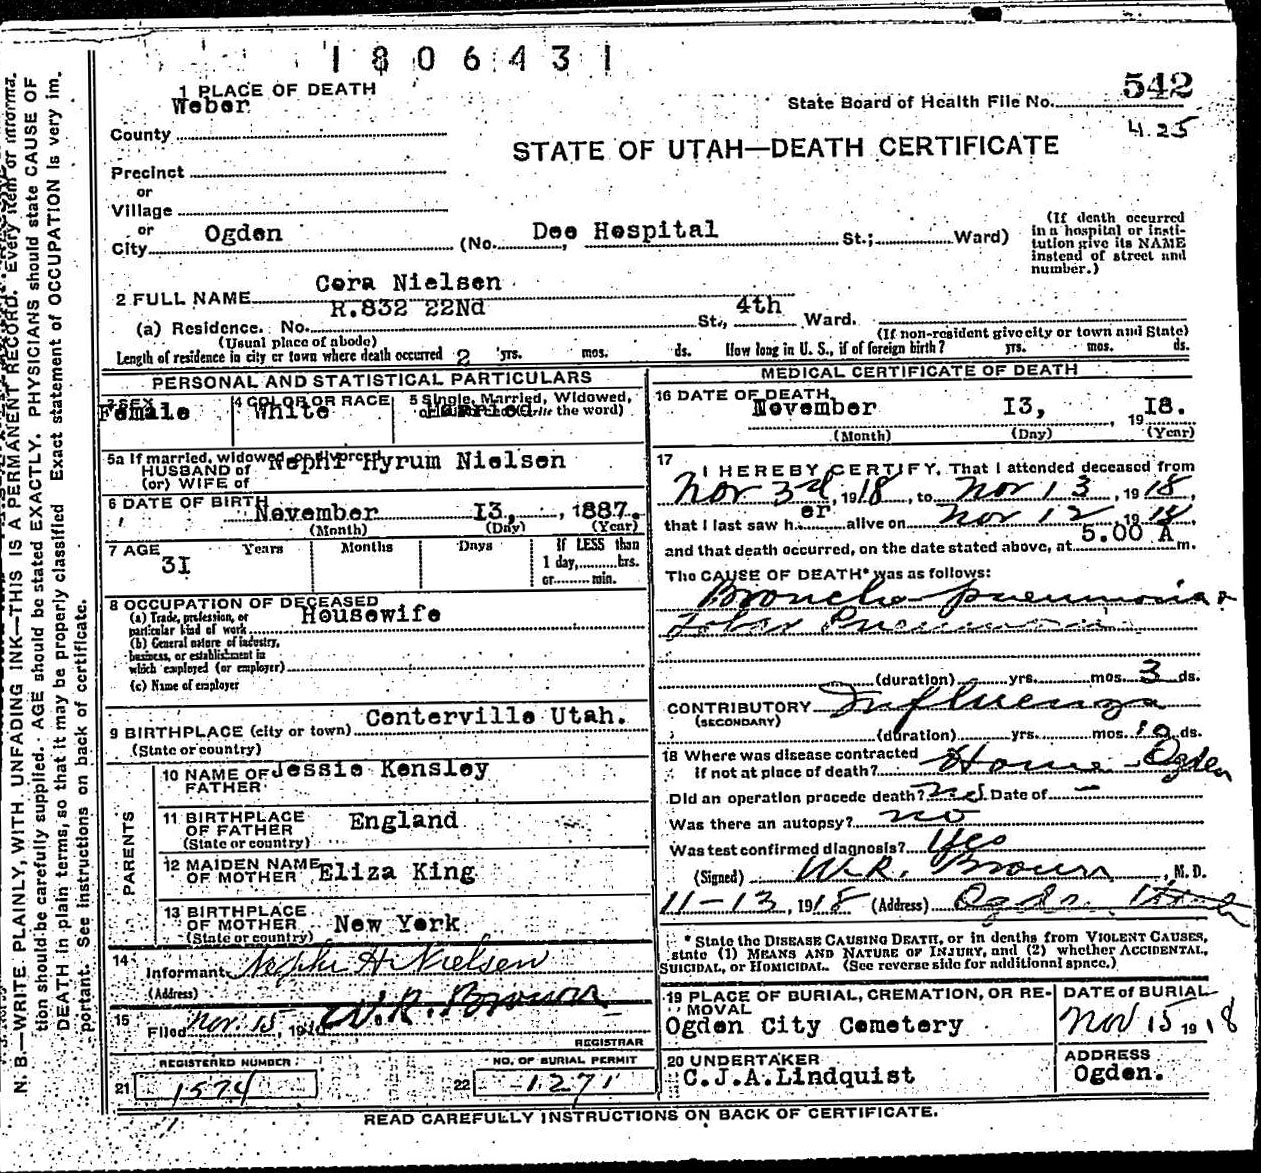 1806431
1 PLACE OF DEATH
Weber
State Board of Health File No. 542
425
County
STATE OF UTAH—DEATH CERTIFICATE
Precinct
or
Village
or
City Ogden (No. Dee Hospital St.; Ward)
(If death occurred
in a hospital or insti-
tution give its NAME
instead of street and
number.)
2 FULL NAME Cora Nielsen
(a) Residence. No. R.832 22Nd St., 4th Ward.
(Usual place of abode)
(If non-resident give city or town and State)
Length of residence in city or town where death occurred 2 yrs. mos. ds. How long in U. S., if of foreign birth? yrs. mos. ds.
PERSONAL AND STATISTICAL PARTICULARS
3 SEX
Female
4 COLOR OR RACE
White
5 Single, Married, Widowed,
or Divorced (write the word)
Married
5a If married, widowed or divorced
HUSBAND of
(or) WIFE of
Nephi Hyrum Nielsen
6 DATE OF BIRTH
November 13, 1887.
(Month) (Day) (Year)
7 AGE Years Months Days
31
If LESS than
1 day, hrs.
or min.
8 OCCUPATION OF DECEASED
(a) Trade, profession, or
particular kind of work Housewife
(b) General nature of industry,
business, or establishment in
which employed (or employer)
(c) Name of employer
9 BIRTHPLACE (city or town) Centerville Utah.
(State or country)
PARENTS
10 NAME OF
FATHER
Jessie Kensley
11 BIRTHPLACE
OF FATHER
(State or country)
England
12 MAIDEN NAME
OF MOTHER
Eliza King
13 BIRTHPLACE
OF MOTHER
(State or country)
New York
14
Informant Nephi H Nielsen
(Address)
15
Filed Nov. 15 W.R. Brown
REGISTRAR
REGISTERED NUMBER
21 1574
NO. OF BURIAL PERMIT
22 1271
MEDICAL CERTIFICATE OF DEATH
16 DATE OF DEATH
November 13, 1918.
(Month) (Day) (Year)
17
I HEREBY CERTIFY, That I attended deceased from
Nov 3rd, 1918, to Nov 13, 1918,
that I last saw her alive on Nov 12 1918,
and that death occurred, on the date stated above, at 5.00 A m.
The CAUSE OF DEATH* was as follows:
Broncho pneumonia &
Lobar Pneumonia
(duration) yrs. mos. 3 ds.
CONTRIBUTORY Influenza
(SECONDARY)
(duration) yrs. mos. 10 ds.
18 Where was disease contracted
if not at place of death? Home Ogden
Did an operation precede death? no. Date of –
Was there an autopsy? no
Was test confirmed diagnosis? Yes
(Signed) W.R. Brown, M. D.
11-13, 1918 (Address) Ogden, Utah
* State the DISEASE CAUSING DEATH, or in deaths from VIOLENT CAUSES,
state (1) MEANS AND NATURE OF INJURY, and (2) whether ACCIDENTAL,
SUICIDAL, or HOMICIDAL. (See reverse side for additional space.)
19 PLACE OF BURIAL, CREMATION, OR RE-
MOVAL
Ogden City Cemetery
DATE of BURIAL
Nov 15 1918
20 UNDERTAKER
C.J.A.Lindquist
ADDRESS
Ogden.
READ CAREFULLY INSTRUCTIONS ON BACK OF CERTIFICATE.
N. B.—WRITE PLAINLY, WITH UNFADING INK—THIS IS A PERMANENT RECORD. Every item of informa-
tion should be carefully supplied. AGE should be stated EXACTLY. PHYSICIANS should state CAUSE OF
DEATH in plain terms, so that it may be properly classified Exact statement of OCCUPATION is very im-
portant. See instructions on back of certificate.